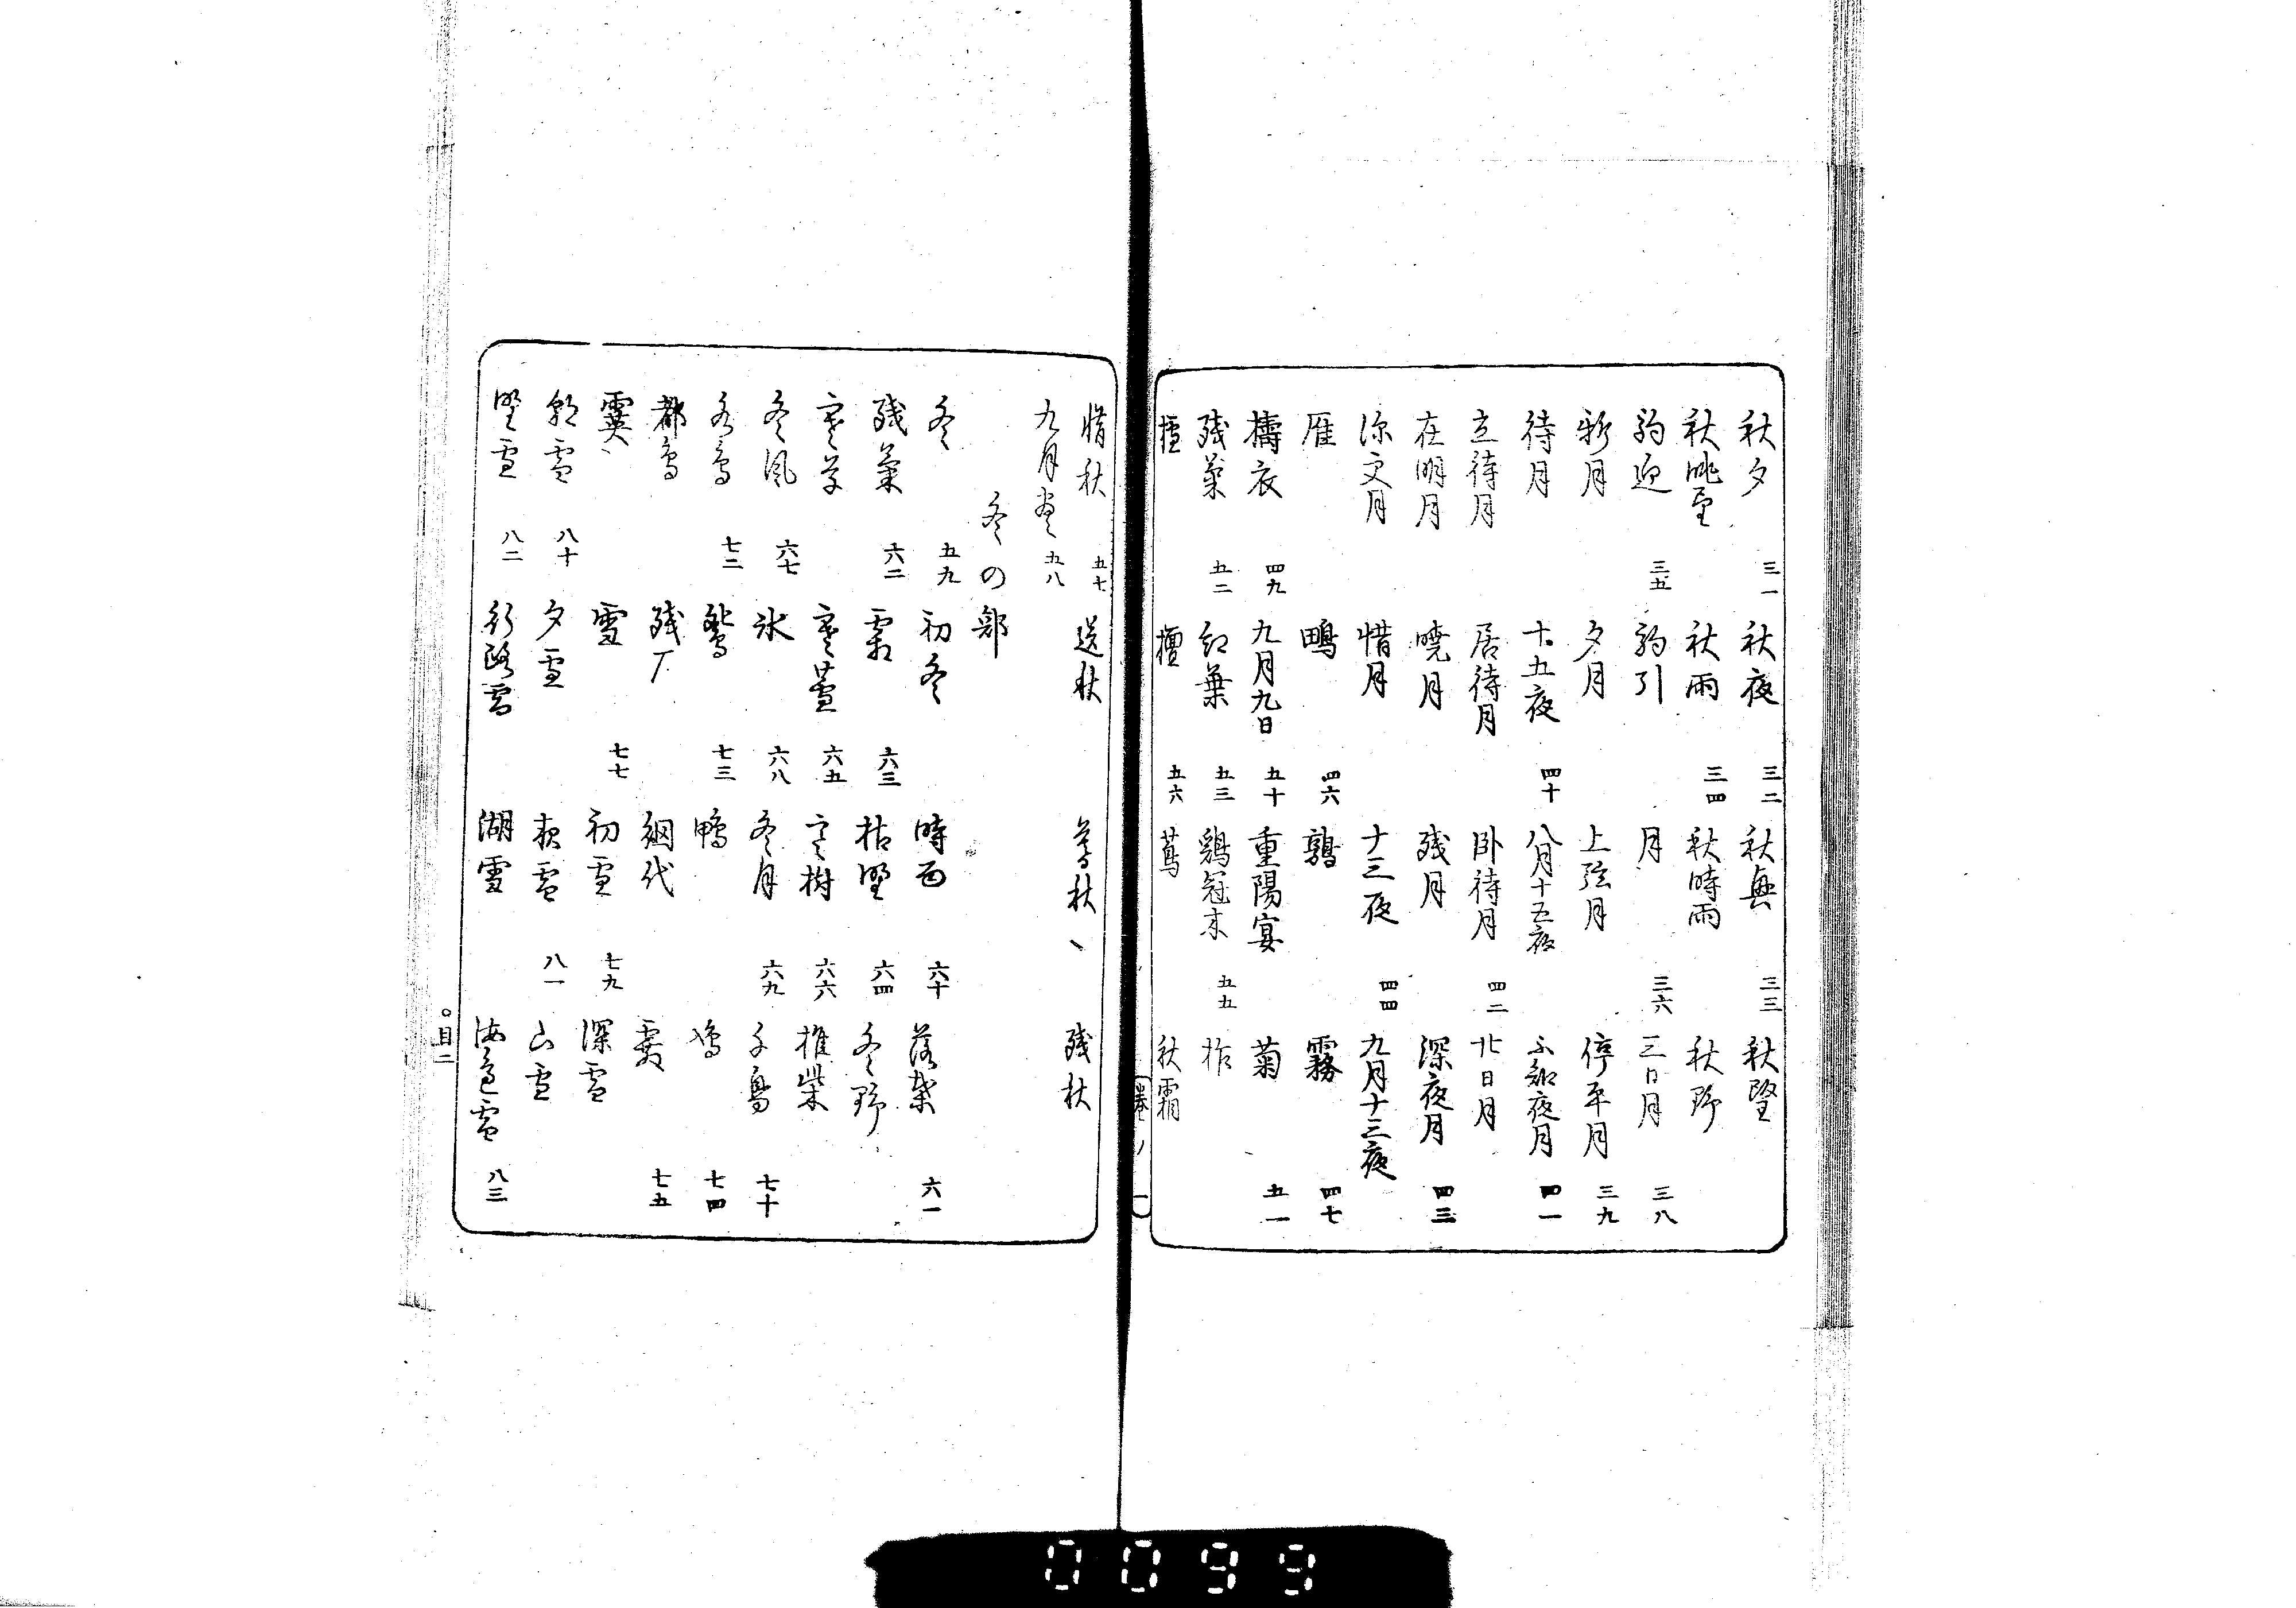 秋夕 三一 秋夜 三二 秋興 三三 秋望
秋眺望 秋雨 三四 秋時雨 秋野
駒迎 三五 駒引 月 三六 三日月 三八
新月 夕月 上弦月 停午月 三九
待月 十五夜 四十 八月十五夜 不知夜月 四一
立待月 居待月 臥待月 四二 廿日月
在明月 暁月 残月 深夜月 四三
深更月 惜月 十三夜 四四 九月十三夜
雁 鴫 四六 鶉 霧 四七
擣衣 四九 九月九日 五十 重陽宴 菊 五一
残菊 五二 紅葉 五三 鶏冠木 五五 柞
檀 五六 蔦 秋霜
惜秋 五七 送秋 暮秋 残秋
九月尽 五八
冬の部
冬 五九 初冬 時雨 六十 落葉 六一
残菊 六二 霜 六三 枯野 六四 冬野
寒草 寒蘆 六五 寒樹 六六 椎柴
冬風 六七 氷 六八 冬月 六九 千鳥 七十
水鳥 七二 鴛 七三 鴨 七四
都鳥 残厂 網代 七五
霙 雪 七七 初雪 七九 深雪
朝雪 八十 夕雪 夜雪 八一 山雪
野雪 八二 行路雪 湖雪 海辺雪 八三
目二
0099